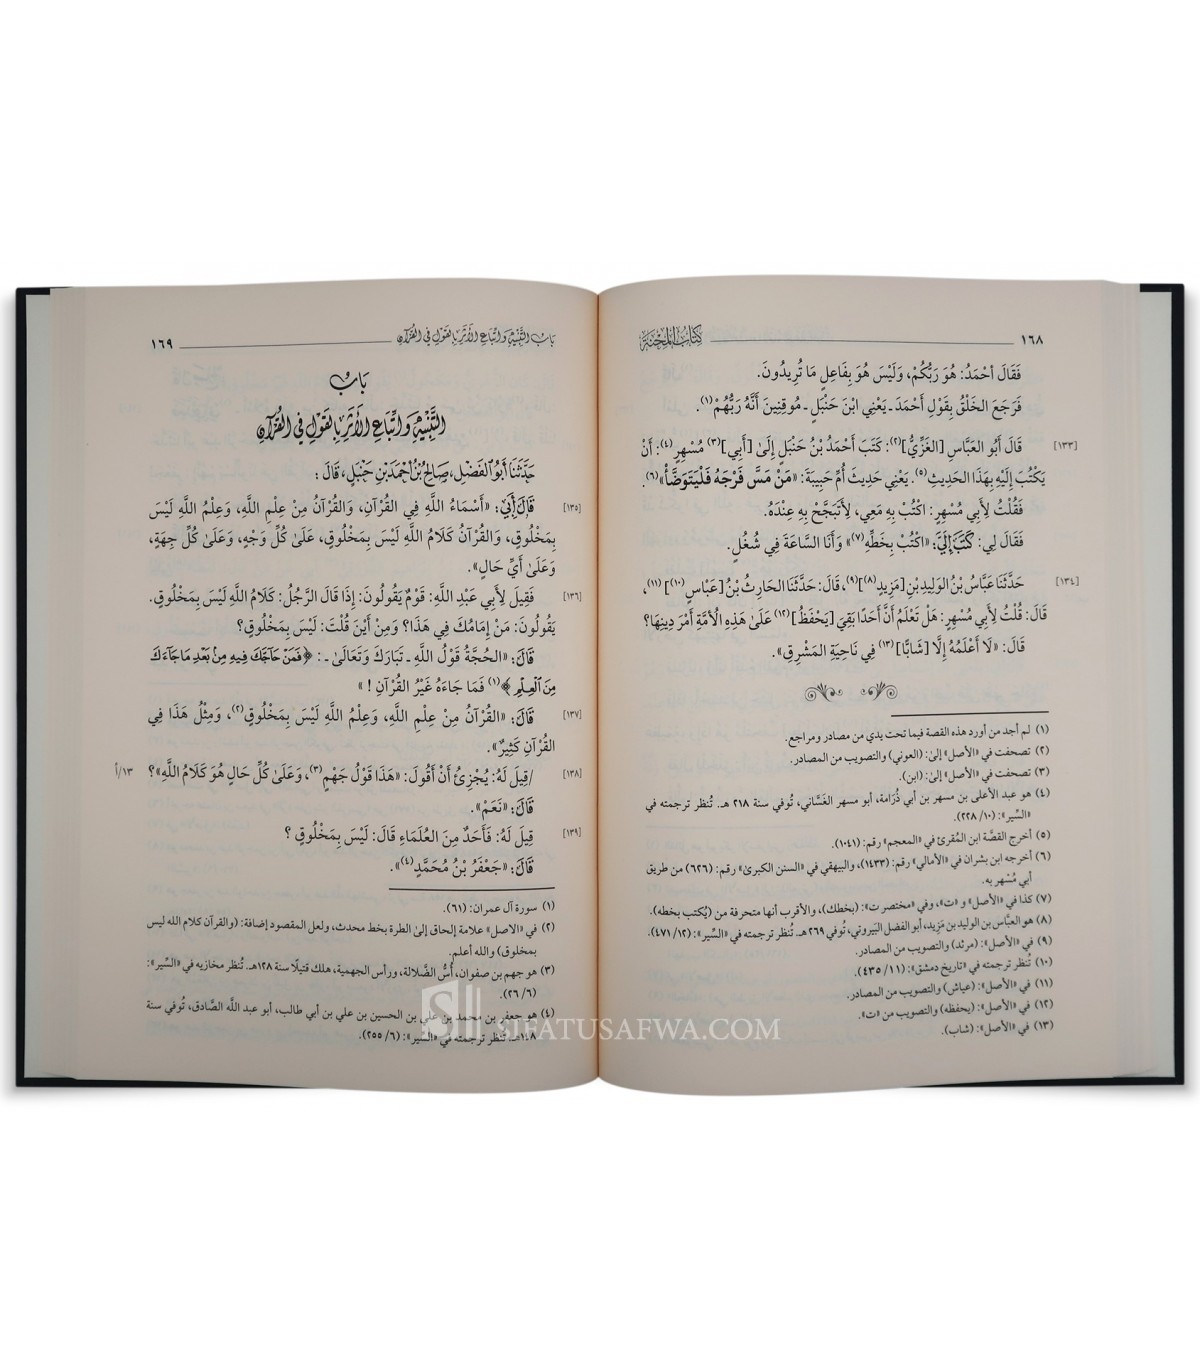 ١٦٨ كتاب المحنة
فَقَالَ أَحْمَدُ: هُوَ رَبُّكُمْ، وَلَيْسَ هُوَ بِفَاعِلٍ مَا تُرِيدُونَ.
فَرَجَعَ الخَلْقُ بِقَوْلِ أَحْمَدَ ـ يَعْنِي ابْنَ حَنْبَلٍ ـ مُوقِنِينَ أَنَّهُ رَبُّهُمْ»(١).
[١٣٣] قَالَ أَبُو العَبَّاسِ [الغَزِّيُّ](٢): كَتَبَ أَحْمَدُ بْنُ حَنْبَلٍ إِلَىٰ [أَبِي](٣) مُسْهِرٍ(٤): أَنْ
يَكْتُبَ إِلَيْهِ بِهَذَا الحَدِيثِ(٥). يَعْنِي حَدِيثَ أُمِّ حَبِيبَةَ: «مَنْ مَسَّ فَرْجَهُ فَلْيَتَوَضَّأْ»(٦).
فَقُلْتُ لِأَبِي مُسْهِرٍ: اكْتُبْ بِهِ مَعِي، لِأَتَبَجَّحَ بِهِ عِنْدَهُ.
فَقَالَ لِي: كَتَبَ إِلَيَّ: «اكْتُبْ بِخَطِّهِ(٧)» وَأَنَا السَّاعَةَ فِي شُغُلٍ.
[١٣٤] حَدَّثَنَا عَبَّاسُ بْنُ الوَلِيدِ بْنِ [مَزِيدٍ(٨)](٩)، قَالَ: حَدَّثَنَا الحَارِثُ بْنُ [عَبَّاسٍ(١٠)](١١)،
قَالَ: قُلْتُ لِأَبِي مُسْهِرٍ: هَلْ تَعْلَمُ أَنَّ أَحَدًا بَقِيَ [يَحْفَظُ](١٢) عَلَىٰ هَذِهِ الْأُمَّةِ أَمْرَ دِينِهَا؟
قَالَ: «لَا أَعْلَمُهُ إِلَّا [شَابًّا](١٣) فِي نَاحِيَةِ المَشْرِقِ».
(١) لم أجد من أورد هذه القصة فيما تحت يدي من مصادر ومراجع.
(٢) تصحفت في «الأصل» إلىٰ: (العوني) والتصويب من المصادر.
(٣) تصحفت في «الأصل» إلىٰ: (ابن).
(٤) هو عبد الأعلىٰ بن مسهر بن أبي ذُرَامة، أبو مسهر الغَسَّاني، تُوفي سنة ٢١٨ هـ. تُنظر ترجمته في
«السِّير»: (١٠/ ٢٢٨).
(٥) أخرج القصَّة ابن المُقرئ في «المعجم» رقم: (١٠٤١).
(٦) أخرجه ابن بشران في «الأمالي» رقم: (١٤٣٣)، والبيهقي في «السنن الكبرىٰ» رقم: (٦٢٦) من طريق
أبي مُسْهر به.
(٧) كذا في «الأصل» و«ت»، وفي «مختصر ت»: (بخطك)، والأقرب أنها متحرفة من (يُكتب بخطه).
(٨) هو العبَّاس بن الوليد بن مَزِيد، أبو الفضل البَيروتي، تُوفي ٢٦٩ هـ. تُنظر ترجمته في «السِّير»: (١٢/ ٤٧١).
(٩) في «الأصل»: (مرثد) والتصويب من المصادر.
(١٠) تُنظر ترجمته في «تاريخ دمشق»: (١١/ ٤٣٥).
(١١) في «الأصل»: (عياش) والتصويب من المصادر.
(١٢) في «الأصل»: (يحفظه) والتصويب من «ت».
(١٣) في «الأصل»: (شاب).
باب التنبيه واتباع الأثر بالقول في القرآن ١٦٩
باب
التنبيه واتباع الأثر بالقول في القرآن
حدثنا أبو الفضل، صالح بن أحمد بن حنبل، قال:
[١٣٥] قَالَ أَبِي: «أَسْمَاءُ اللَّهِ فِي القُرْآنِ، وَالقُرْآنُ مِنْ عِلْمِ اللَّهِ، وَعِلْمُ اللَّهِ لَيْسَ
بِمَخْلُوقٍ، وَالقُرْآنُ كَلَامُ اللَّهِ لَيْسَ بِمَخْلُوقٍ، عَلَىٰ كُلِّ وَجْهٍ، وَعَلَىٰ كُلِّ جِهَةٍ،
وَعَلَىٰ أَيِّ حَالٍ».
[١٣٦] فَقِيلَ لِأَبِي عَبْدِ اللَّهِ: قَوْمٌ يَقُولُونَ: إِذَا قَالَ الرَّجُلُ: كَلَامُ اللَّهِ لَيْسَ بِمَخْلُوقٍ.
يَقُولُونَ: مَنْ إِمَامُكَ فِي هَذَا؟ وَمِنْ أَيْنَ قُلْتَ: لَيْسَ بِمَخْلُوقٍ؟
قَالَ: «الحُجَّةُ قَوْلُ اللَّهِ ـ تَبَارَكَ وَتَعَالَىٰ ـ: ﴿فَمَنْ حَآجَّكَ فِيهِ مِنْ بَعْدِ مَا جَآءَكَ
مِنَ ٱلْعِلْمِ﴾(١) فَمَا جَاءَهُ غَيْرُ القُرْآنِ!»
[١٣٧] قَالَ: «القُرْآنُ مِنْ عِلْمِ اللَّهِ، وَعِلْمُ اللَّهِ لَيْسَ بِمَخْلُوقٍ(٢)، وَمِثْلُ هَذَا فِي
القُرْآنِ كَثِيرٌ».
[١٣٨] /قِيلَ لَهُ: يُجْزِئُ أَنْ أَقُولَ: «هَذَا قَوْلُ جَهْمٍ(٣)، وَعَلَىٰ كُلِّ حَالٍ هُوَ كَلَامُ اللَّهِ»؟ ١٣/أ
قَالَ: «نَعَمْ».
[١٣٩] قِيلَ لَهُ: فَأَحَدٌ مِنَ العُلَمَاءِ قَالَ: لَيْسَ بِمَخْلُوقٍ؟
قَالَ: «جَعْفَرُ بْنُ مُحَمَّدٍ(٤)».
(١) سورة آل عمران: (٦١).
(٢) في «الأصل» علامة إلحاق إلىٰ الطرة بخط محدث، ولعل المقصود إضافة: (والقرآن كلام الله ليس
بمخلوق) والله أعلم.
(٣) هو جهم بن صفوان، أُسُّ الضَّلالة، ورأس الجهمية، هلك قتيلًا سنة ١٢٨هـ. تُنظر مخازيه في «السِّير»:
(٦/ ٢٦).
(٤) هو جعفر بن محمد بن علي بن الحسين بن علي بن أبي طالب، أبو عبد اللَّه الصَّادق، تُوفي سنة
١٤٨هـ. تُنظر ترجمته في «السِّير»: (٦/ ٢٥٥).
SIFATUSAFWA.COM